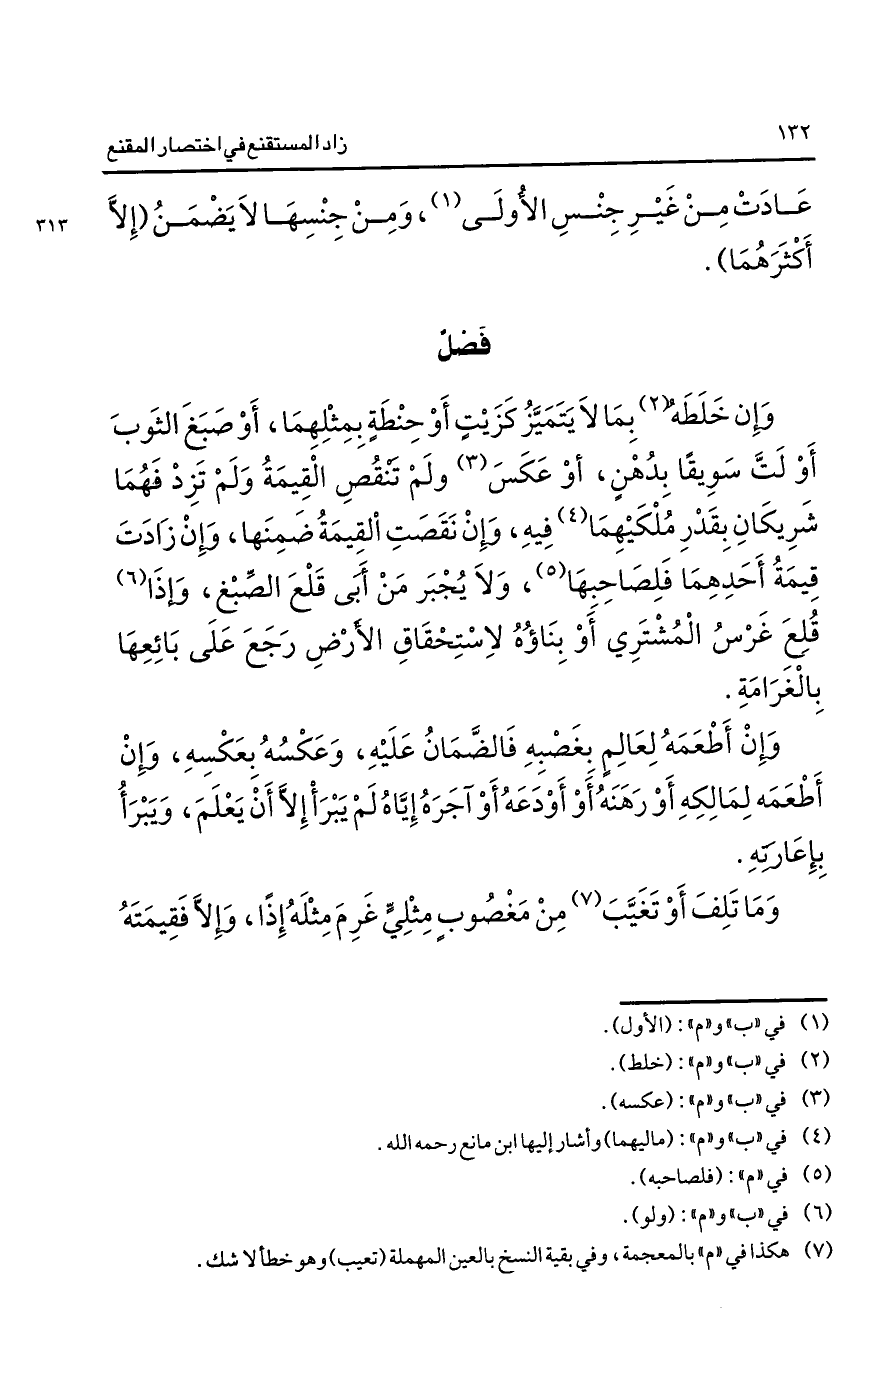 ١٣٢
زاد المستقنع في اختصار المقنع
عَــادَتْ مِــنْ غَيْــرِ جِنْــسِ الأُولَــى(١)، وَمِــنْ جِنْسِهَــا لاَ يَضْمَــنُ (إِلاَّ
٣١٣
أَكْثَرَهُمَا).
فَصْلٌ
وَإِن خَلَطَهُ(٢) بِمَا لاَ يَتَمَيَّزُ كَزَيْتٍ أَوْ حِنْطَةٍ بِمِثْلِهِمَا، أَوْ صَبَغَ الثَوبَ
أَوْ لَتَّ سَوِيقًا بِدُهْنٍ، أوْ عَكَسَ(٣) ولَمْ تَنْقُصِ الْقِيمَةُ وَلَمْ تَزِدْ فَهُمَا
شَرِيكَانِ بِقَدْرِ مُلْكَيْهِمَا(٤) فِيهِ، وَإِنْ نَقَصَتِ القِيمَةُ ضَمِنَها، وَإِنْ زَادَتَ
قِيمَةُ أَحَدِهِمَا فَلِصَاحِبِهَا(٥)، وَلاَ يُجْبَر مَنْ أَبَى قَلْعَ الصِّبْغِ، وَإِذَا(٦)
قُلِعَ غَرْسُ الْمُشْتَرِي أَوْ بِنَاؤُهُ لاِسْتِحْقَاقِ الأَرْضِ رَجَعَ عَلَى بَائِعِهَا
بِالْغَرَامَةِ.
وَإِنْ أَطْعَمَهُ لِعَالِمٍ بِغَصْبِهِ فَالضَّمَانُ عَلَيْهِ، وَعَكْسُهُ بِعَكْسِهِ، وَإِنْ
أَطْعَمَه لِمَالِكِهِ أَوْ رَهَنَهُ أَوْ أَوْدَعَهُ أَوْ آجَرَهُ إِيَّاهُ لَمْ يَبْرَأْ إِلاَّ أَنْ يَعْلَمَ، وَيَبْرَأُ
بِإِعَارَتِهِ.
وَمَا تَلِفَ أَوْ تَغَيَّبَ(٧) مِنْ مَغْصُوبٍ مِثْلِيٍّ غَرِمَ مِثْلَهُ إِذًا، وَإِلاَّ فَقِيمَتَهُ
(١) في «ب» و«م»: (الأول).
(٢) في «ب» و«م»: (خلط).
(٣) في «ب» و«م»: (عكسه).
(٤) في «ب» و«م»: (ماليهما) وأشار إليها ابن مانع رحمه الله.
(٥) في «م»: (فلصاحبه).
(٦) في «ب» و«م»: (ولو).
(٧) هكذا في «م» بالمعجمة، وفي بقية النسخ بالعين المهملة (تعيب) وهو خطأ لا شك.